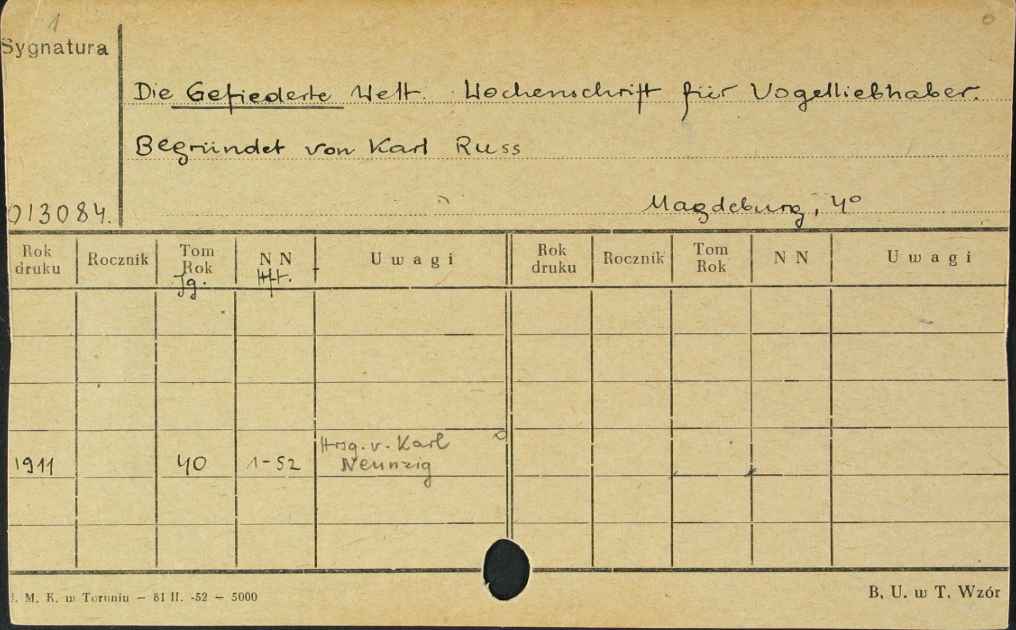 1
Sygnatura
Die Gefiederte Welt. Wochenschrift für Vogelliebhaber.
Begründet von Karl Russ
013084.
Magdeburg, 4°
Rok druku Rocznik Tom Rok N N Uwagi Rok druku Rocznik Tom Rok N N Uwagi
Jg. Hft.
Hrsg. v. Karl
1911 40 1-52 Neunzig
M. K. w Toruniu — 81 II. -52 — 5000
B. U. w T. Wzór